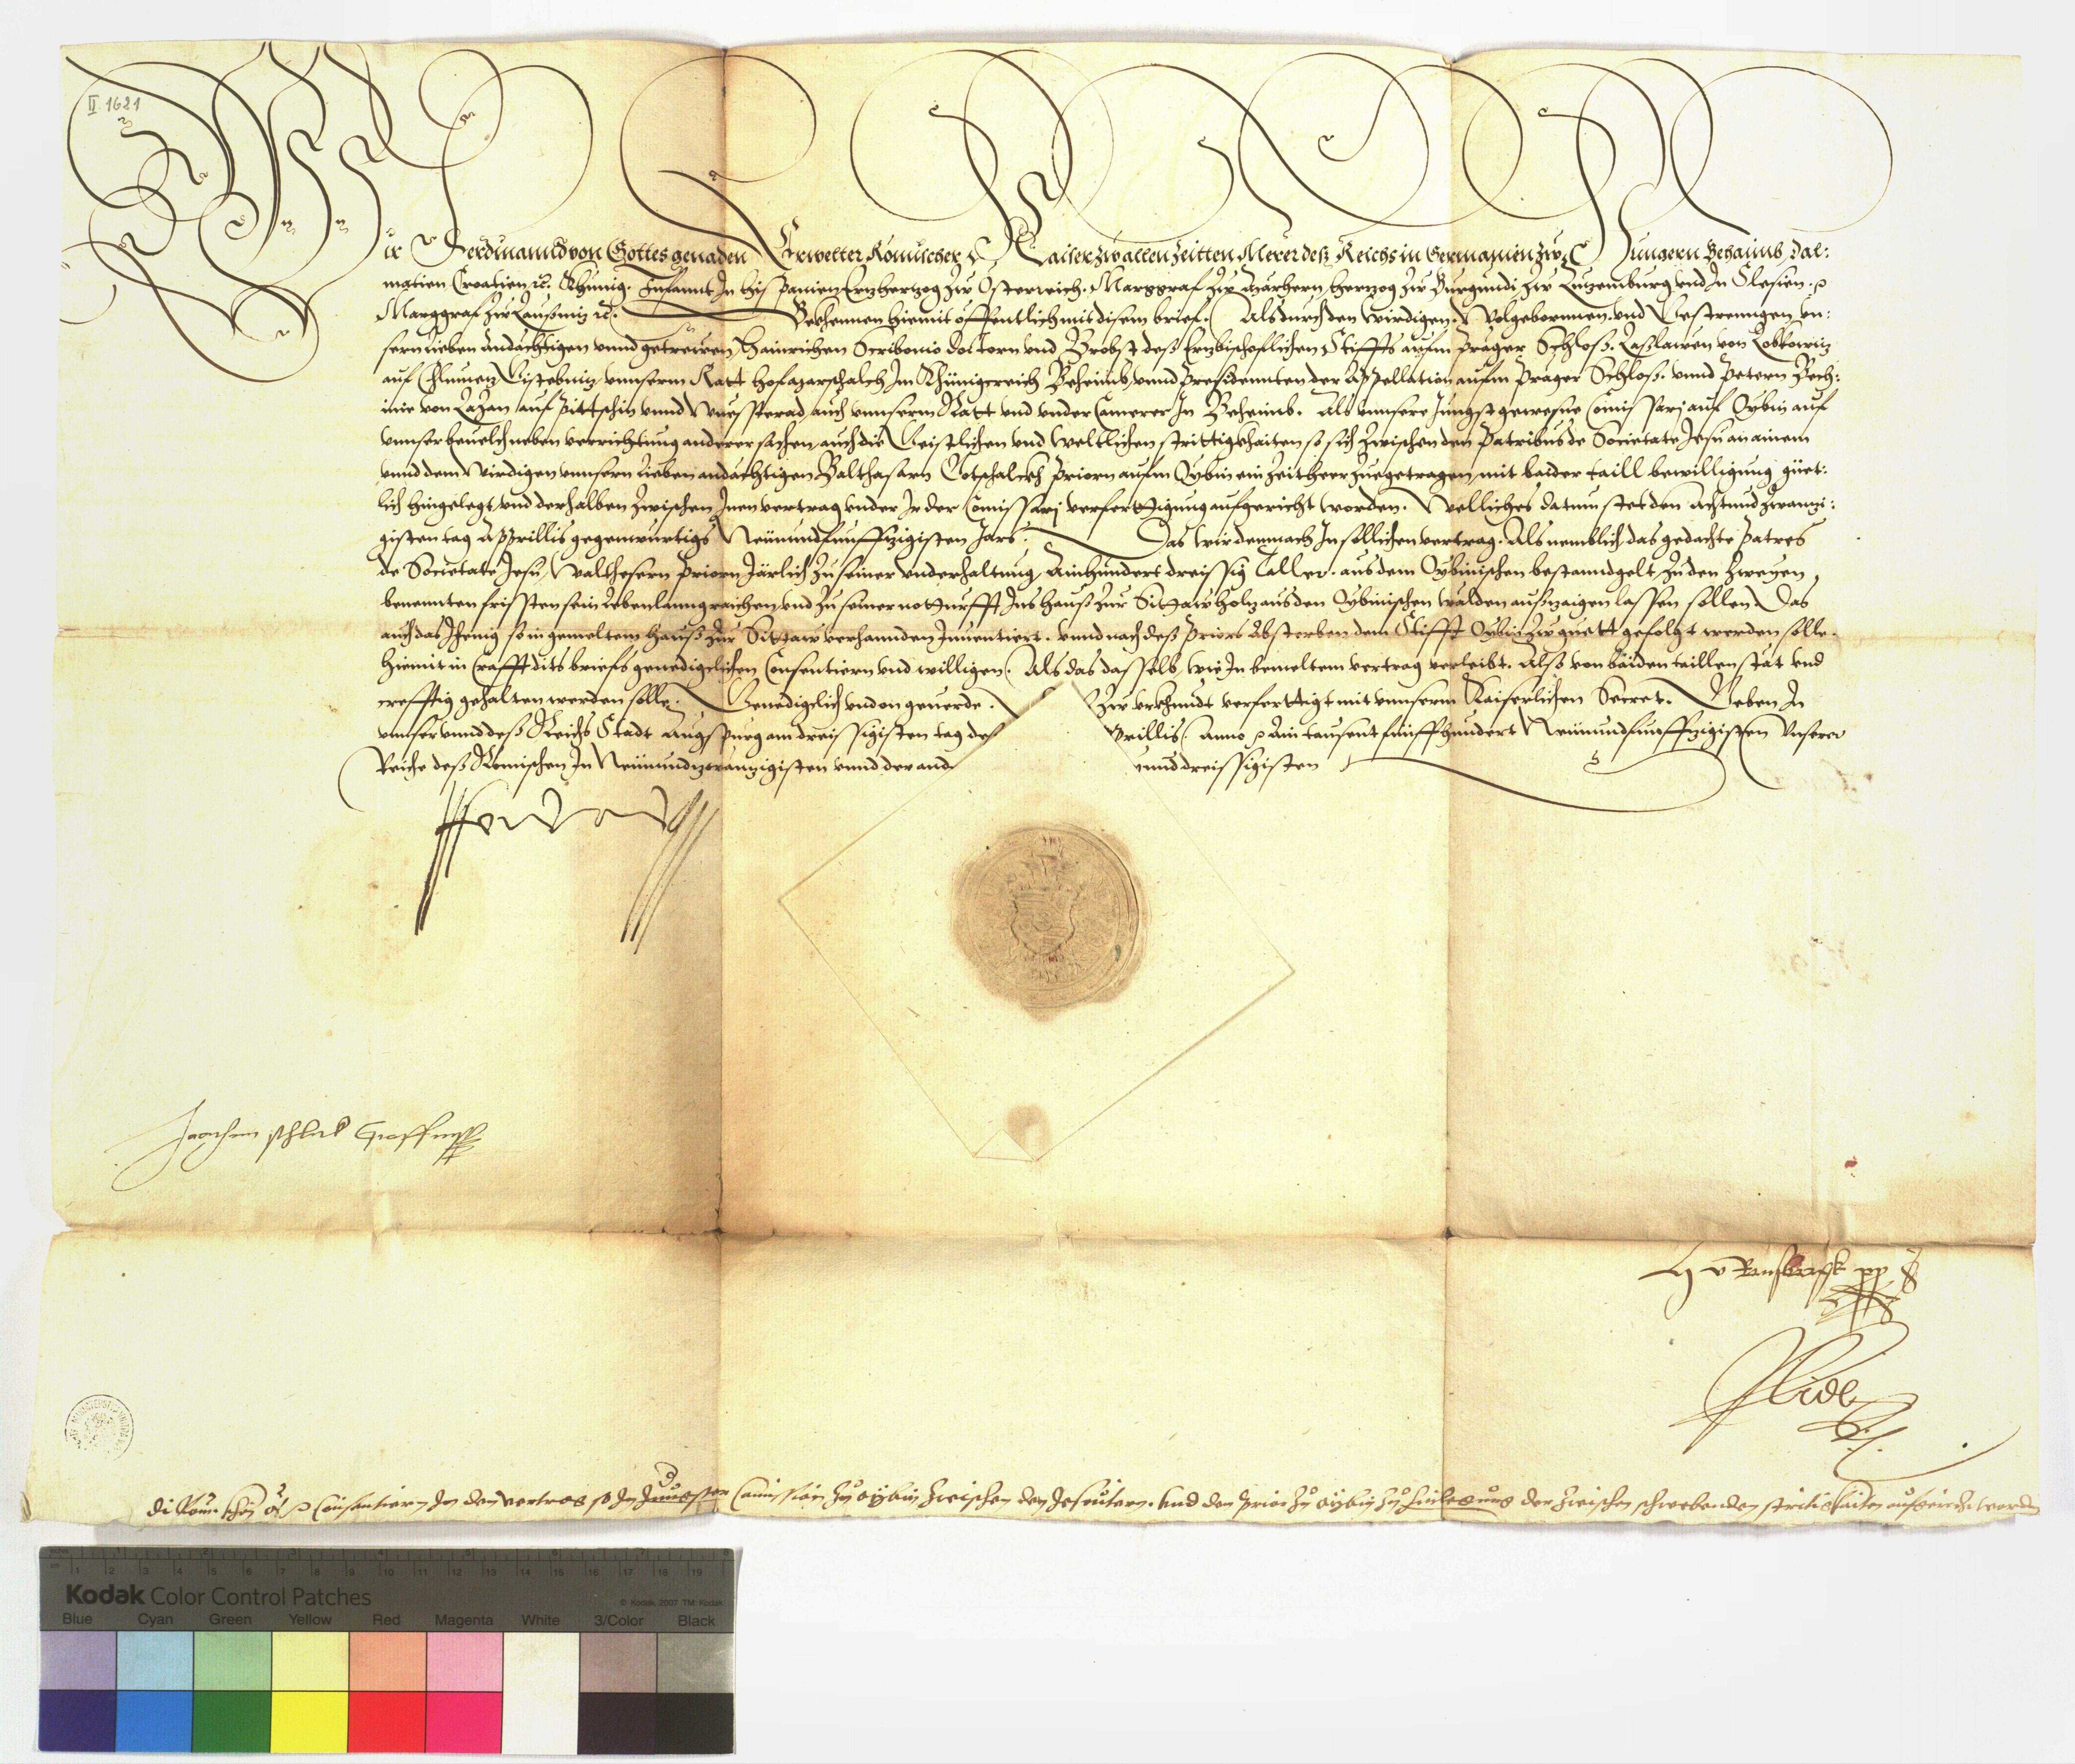 II 1621
Wir Ferdinannd von Gottes genaden Erwelter Römischer Kaiser zw allen zeitten Merer deß Reichs in Germanien zw Hungern Behaimb, Dal:
matien Croatien ꝛc. Khunig. Infannt In Hispanien Ertzhertzog zw Österreich. Marggraf zw Märhern, Hertzog zw Burgundi, zw Lutzemburg vnd In Slesien.
Marggraf zw Laußnitz ꝛc. Bekhennen hiemit offentlich mit disem brief. Als durch den Wirdigen. Wolgebornnen. vnd Gestrenngen vn:
sern lieben andächtigen vnnd getrewen, Hainrichen Scribonio doctorn vnd Brobst deß Ertzbischoflichen Stiffts aufm Prager Schloß. Laßlawen von Lobkowitz
auf Chlumetz Gistebnitz vnnserm Ratt Hofmarschalch Im Khünigreich Beheimb, vnnd Presidennten der Appellation aufm Prager Schloß. vnnd Petern Bech:
inie von Lazan auf Pittschin vnnd auch vnnserm Ratt vnd vnder Camerer In Beheimb. Als vnnsere Jungst gewesne Comissarj auf Oybin auf
vnnser beuelch neben verrichtung anderer sachen, auch die Geistlichen vnd Weltlichen strittigkhaiten so sich zwischen den Patribus de Societate Jesu an ainem
vnnd dem Wirdigen vnnsern lieben andächtigen Balthasarn Gotschalckh Priorn aufm Oybin ein zeitheer zuegetragen, mit baider taill bewilligung güet:
lich hingelegt, vnd derhalben zwischen Inen vertrag vnder Ir der Comissarj verferttigung aufgericht worden. Welliches datum stet den Achtundzwanzi:
gisten tag Apprillis gegenwurtigs Neünundfunffzigisten Jars. Das wir demnach In sollichen vertrag. Als nemblich das gedachte Patres
de Societate Jesu, Walthesern Priorn Järlich zu seiner vnderhaltung Ainhundert dreissig Taller. aus dem Oybinischen bestanndgelt zu den zweyen
benennten fristen sein lebenlanng raichen, vnd zu seiner notturfft Ins hauß zur Sittaw holz aus den Oybinischen wälden außzaigen lassen sollen. Das
auch das Jhenig so in gemeltem hauß zur Sittaw verhannden Inuentiert. vnnd nach deß Priors absterben dem Stifft Oybin zw guett gefolgt werden solle.
Hiemit in Crafft dits briefs genedigclichen Consentiern vnd willigen. Als das dasselb wie In bemeltem vertrag verleibt. Also von baiden taillen stät vnd
crefftig gehalten werden solle. Genedigclich vnd on geuerde. Zw vrkhundt verferttigt mit vnnserm Kaiserlichen Secret. Geben In
vnnser vnnd deß Reichs Stadt Augspurg am dreissigisten tag des Prillis. Anno ain tausent fünffhundert Neünundfünffzigisten Vnserer
Reiche deß Römischen In Neünundzwanzigisten vnnd der and vnnd dreissigisten
Ferdinand
Joachim schlick Graff
Kodak Color Control Patches
© Kodak, 2007 TM: Kodak
Blue Cyan Green Yellow Red Magenta White 3/Color Black